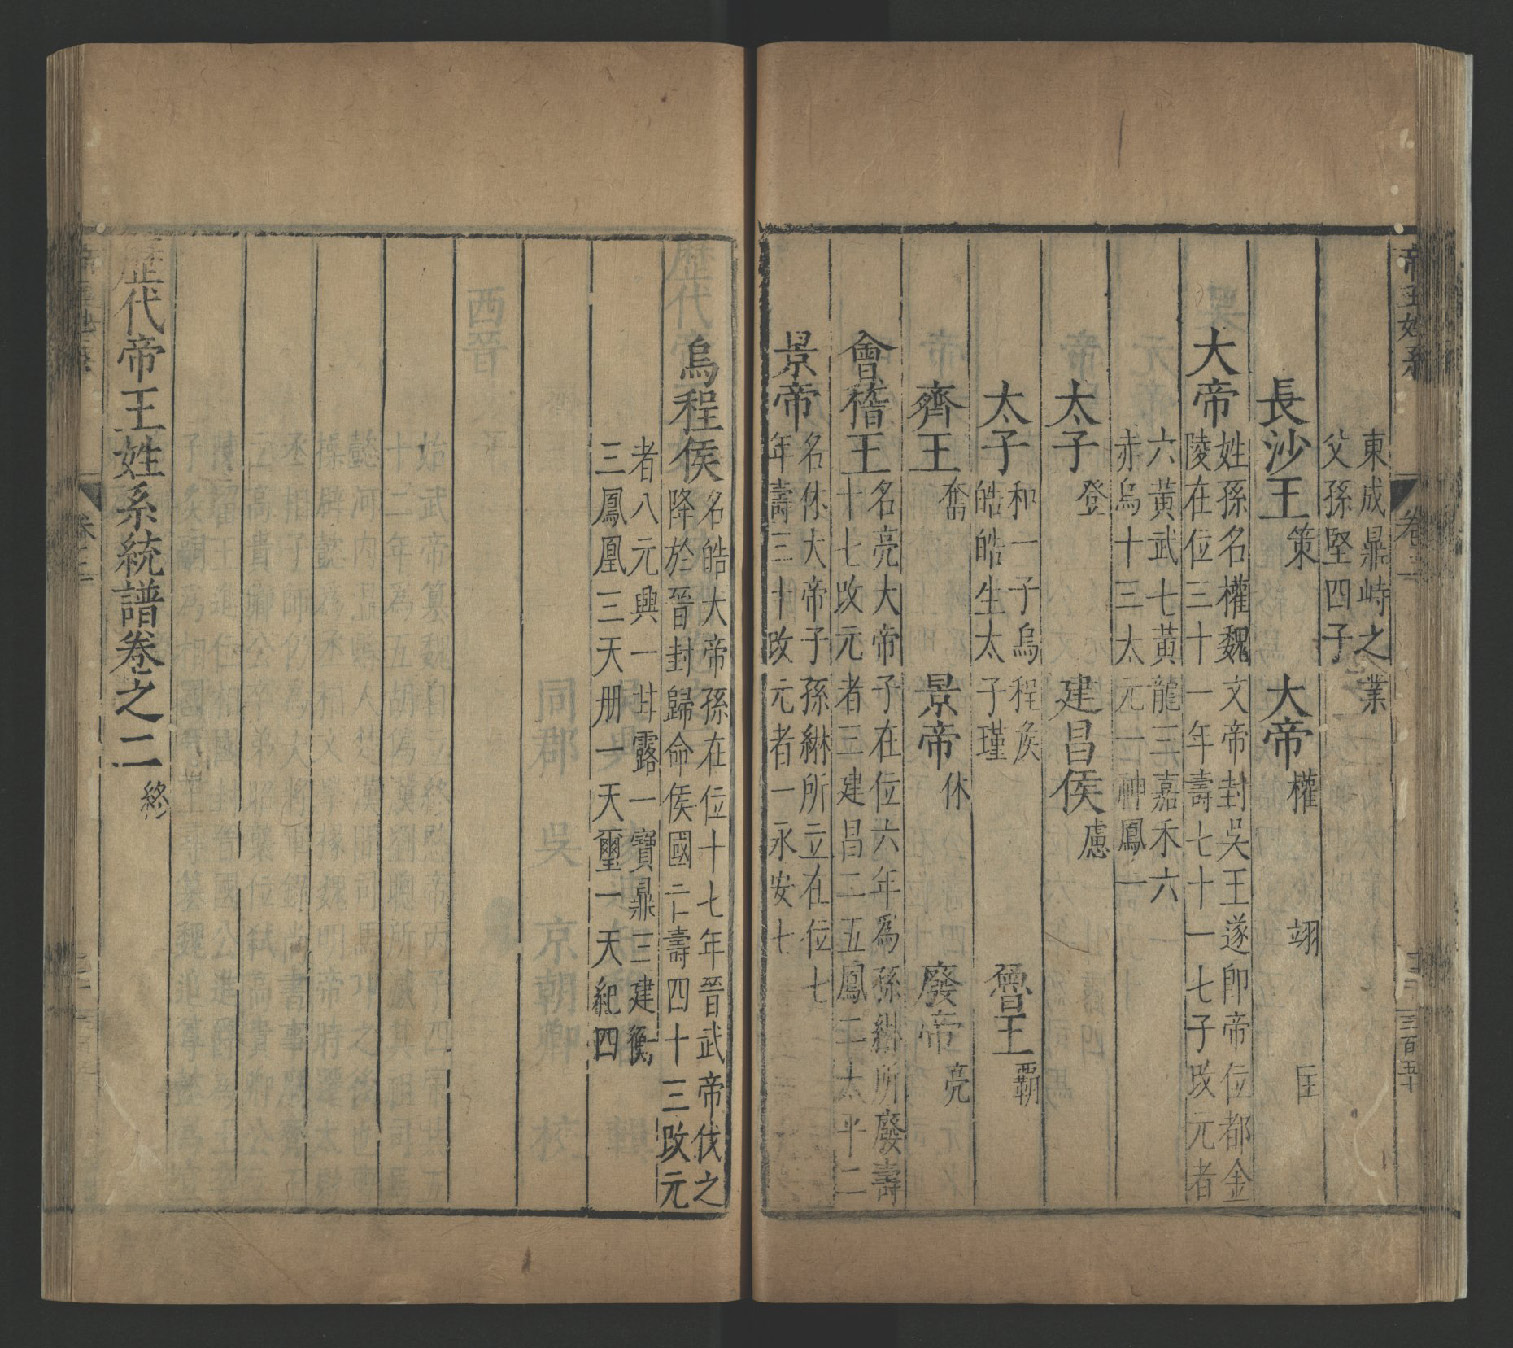 東成鼎峙之業
父孫堅四子
長沙王策 大帝權 翊 匡
大帝姓孫名權魏文帝封吳王遂即帝位都金
陵在位三十一年壽七十一七子改元者
六黃武七黃龍三嘉禾六
赤烏十三太元二神鳳一
太子登 建昌侯慮
太子和一子烏程侯 魯王霸
皓皓生太子瑾
齊王奮 景帝休 廢帝亮
會稽王名亮大帝子在位六年爲孫綝所廢壽
十七改元者三建昌二五鳳二太平二
景帝名休大帝子孫綝所立在位七
年壽三十改元者一永安七
烏程侯名皓大帝孫在位十七年晉武帝伐之
降於晉封歸命侯國亡壽四十三改元
者八元興一甘露一寶鼎三建衡
三鳳凰三天册一天璽一天紀四
歷代帝王姓系統譜卷之二終